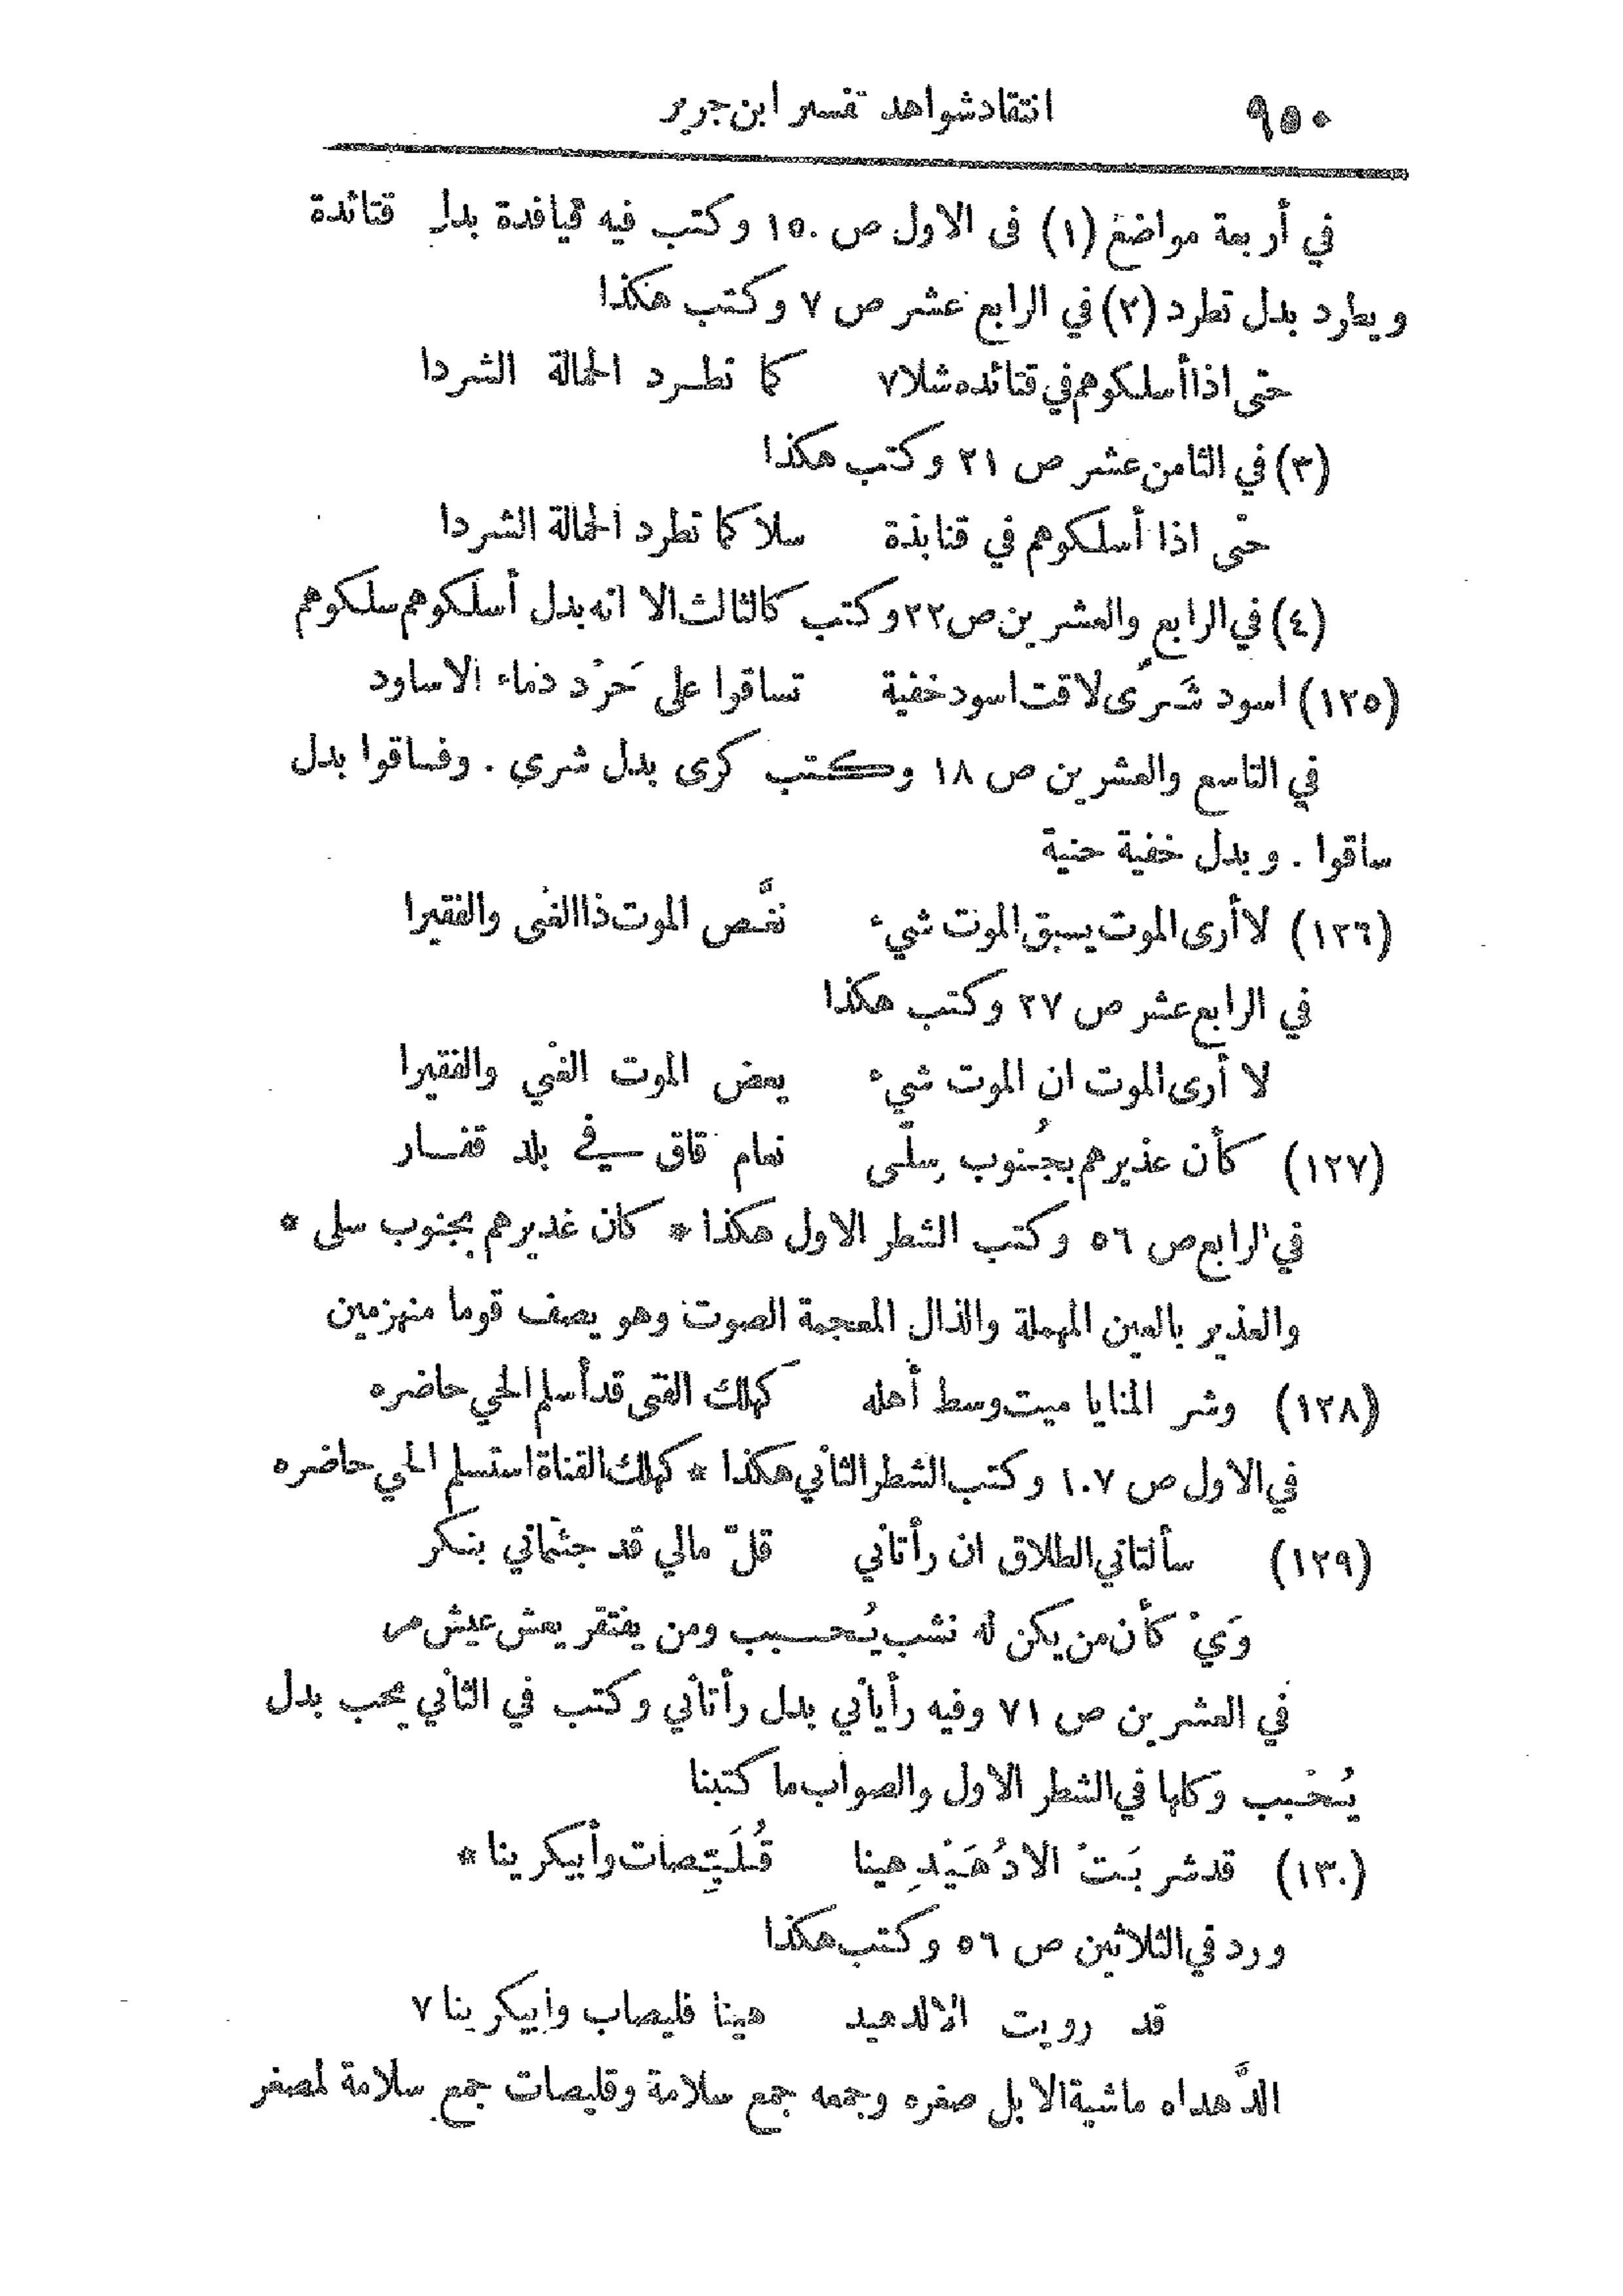 ٩٥٠ انتقاد شواهد تفسير ابن جرير
في أربعة مواضع (١) فى الاول ص ١٥٠ وكتب فيه قيافدة بدل قتائدة
ويطرد بدل تطرد (٢) في الرابع عشر ص ٧ وكتب هكذا
حتى اذا أسلكوهم في قتائده شلا٧ كما تطرد الجمالة الشردا
(٣) في الثامن عشر ص ٢١ وكتب هكذا
حتى اذا أسلكوهم في قنابذة سلا كما تطرد الجمالة الشردا
(٤) في الرابع والعشرين ص ٢٢ وكتب كالثالث الا انه بدل أسلكوهم سلكوهم
(١٢٥) اسود شَرًى لاقت اسود خفية تساقوا على حَرْد دماء الاساود
في التاسع والعشرين ص ١٨ وكتب كرى بدل شري . وفساقوا بدل
ساقوا . وبدل خفية حنية
(١٢٦) لا أرى الموت يسبق الموت شيء نغَّص الموت ذا الغنى والفقيرا
في الرابع عشر ص ٢٧ وكتب هكذا
لا أرى الموت ان الموت شيء يعض الموت الغني والفقيرا
(١٢٧) كأن عذيرهم بجُنوب سِلّى نعام قاق في بلد قفار
في الرابع ص ٥٦ وكتب الشطر الاول هكذا * كان غديرهم بجنوب سلى *
والعذير بالعين المهملة والذال المعجمة الصوت وهو يصف قوما منهزمين
(١٢٨) وشر المنايا ميت وسط أهله كهلك الفتى قد أسلم الحي حاضره
في الاول ص ١٠٧ وكتب الشطر الثاني هكذا * كهلك القناة استسلم الحي حاضره
(١٢٩) سألتاني الطلاق ان رأتاني قلّ مالي قد جئتماني بنكر
وَيْ كأن من يكن له نشب يُحبب ومن يفتقر يعش عيش مر
في العشرين ص ٧١ وفيه رأياني بدل رأتاني وكتب في الثاني يحب بدل
يُحْبب وكلها في الشطر الاول والصواب ما كتبنا
(١٣٠) قد شربَتْ الادُهَيْدِهينا قُلَيِّصات وأبيكرينا *
ورد في الثلاثين ص ٥٦ وكتب هكذا
قد رويت الالدهيد هينا قليصاب وابيكرينا ٧
الدَّهداه ماشية الابل صغره وجمعه جمع سلامة وقليصات جمع سلامة لمصغر